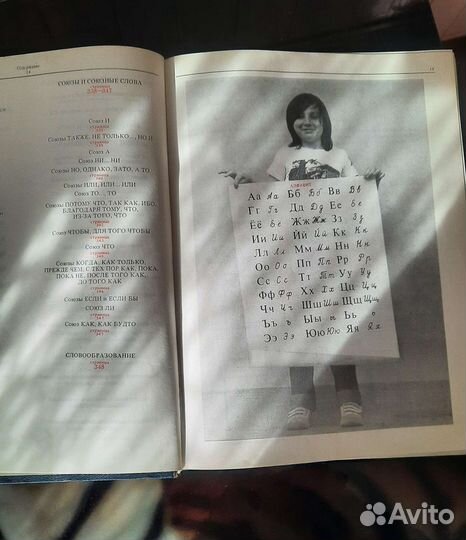 Содержание
14
СОЮЗЫ И СОЮЗНЫЕ СЛОВА
страницы
338-347
Союз И
страница
Союзы ТАКЖЕ, НЕ ТОЛЬКО..., НО И
страница
Союз А
Союз НИ... НИ
Союзы НО, ОДНАКО, ЗАТО, А ТО
страница
Союзы ИЛИ, ИЛИ... ИЛИ
Союз ТО... ТО
Союзы ПОТОМУ ЧТО, ТАК КАК, ИБО,
БЛАГОДАРЯ ТОМУ, ЧТО,
ИЗ-ЗА ТОГО, ЧТО
страница
Союзы ЧТОБЫ, ДЛЯ ТОГО ЧТОБЫ
страница
Союз ЧТО
страница
Союзы КОГДА, КАК ТОЛЬКО,
ПРЕЖДЕ ЧЕМ, С ТЕХ ПОР КАК, ПОКА,
ПОКА НЕ, ПОСЛЕ ТОГО КАК,
ДО ТОГО КАК
страница
Союзы ЕСЛИ и ЕСЛИ БЫ
страница
Союз ЛИ
страница
Союз КАК, КАК БУДТО
страница
СЛОВООБРАЗОВАНИЕ
страница
348
АЛФАВИТ
Аа Аа Бб Бб Вв Вв
Гг Гг Дд Дд Ее Ее
Ёё Ёё Жж Жж Зз Зз
Ии Ии Йй Йй Кк Кк
Лл Лл Мм Мм Нн Нн
Оо Оо Пп Пп Рр Рр
Сс Сс Тт Тт Уу Уу
Фф Фф Хх Хх Цц Цц
Чч Чч Шш Шш Щщ Щщ
Ъъ ъ Ыы ы Ьь ь
Ээ Ээ Юю Юю Яя Яя
Avito